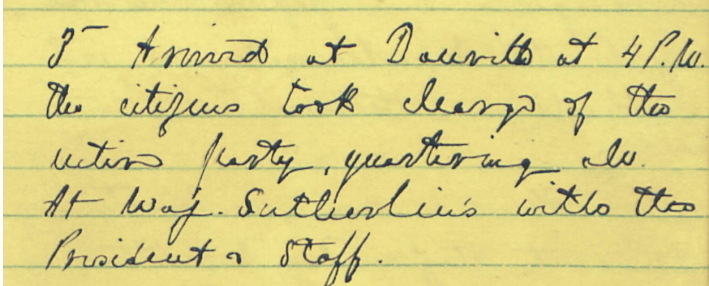 3 Arrived at Danville at 4 P.M.
the citizens took charge of the
entire party, quartering me
At Maj. Sutherlin's with the
President & Staff.